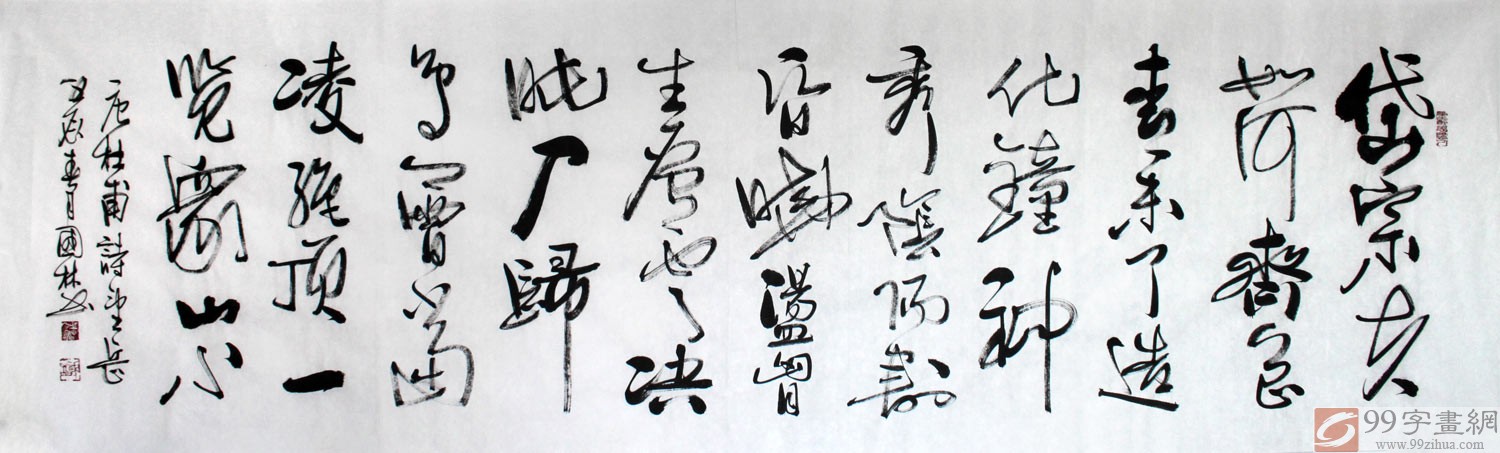 岱宗夫
如何齊魯
青未了造
化鐘神
秀陰陽割
昏曉盪胷
生層雲決
眦入歸
鳥會當
凌絕頂一
覽眾山小
唐杜甫詩望岳
辰春月國林書
99字畫網
www.99zihua.com